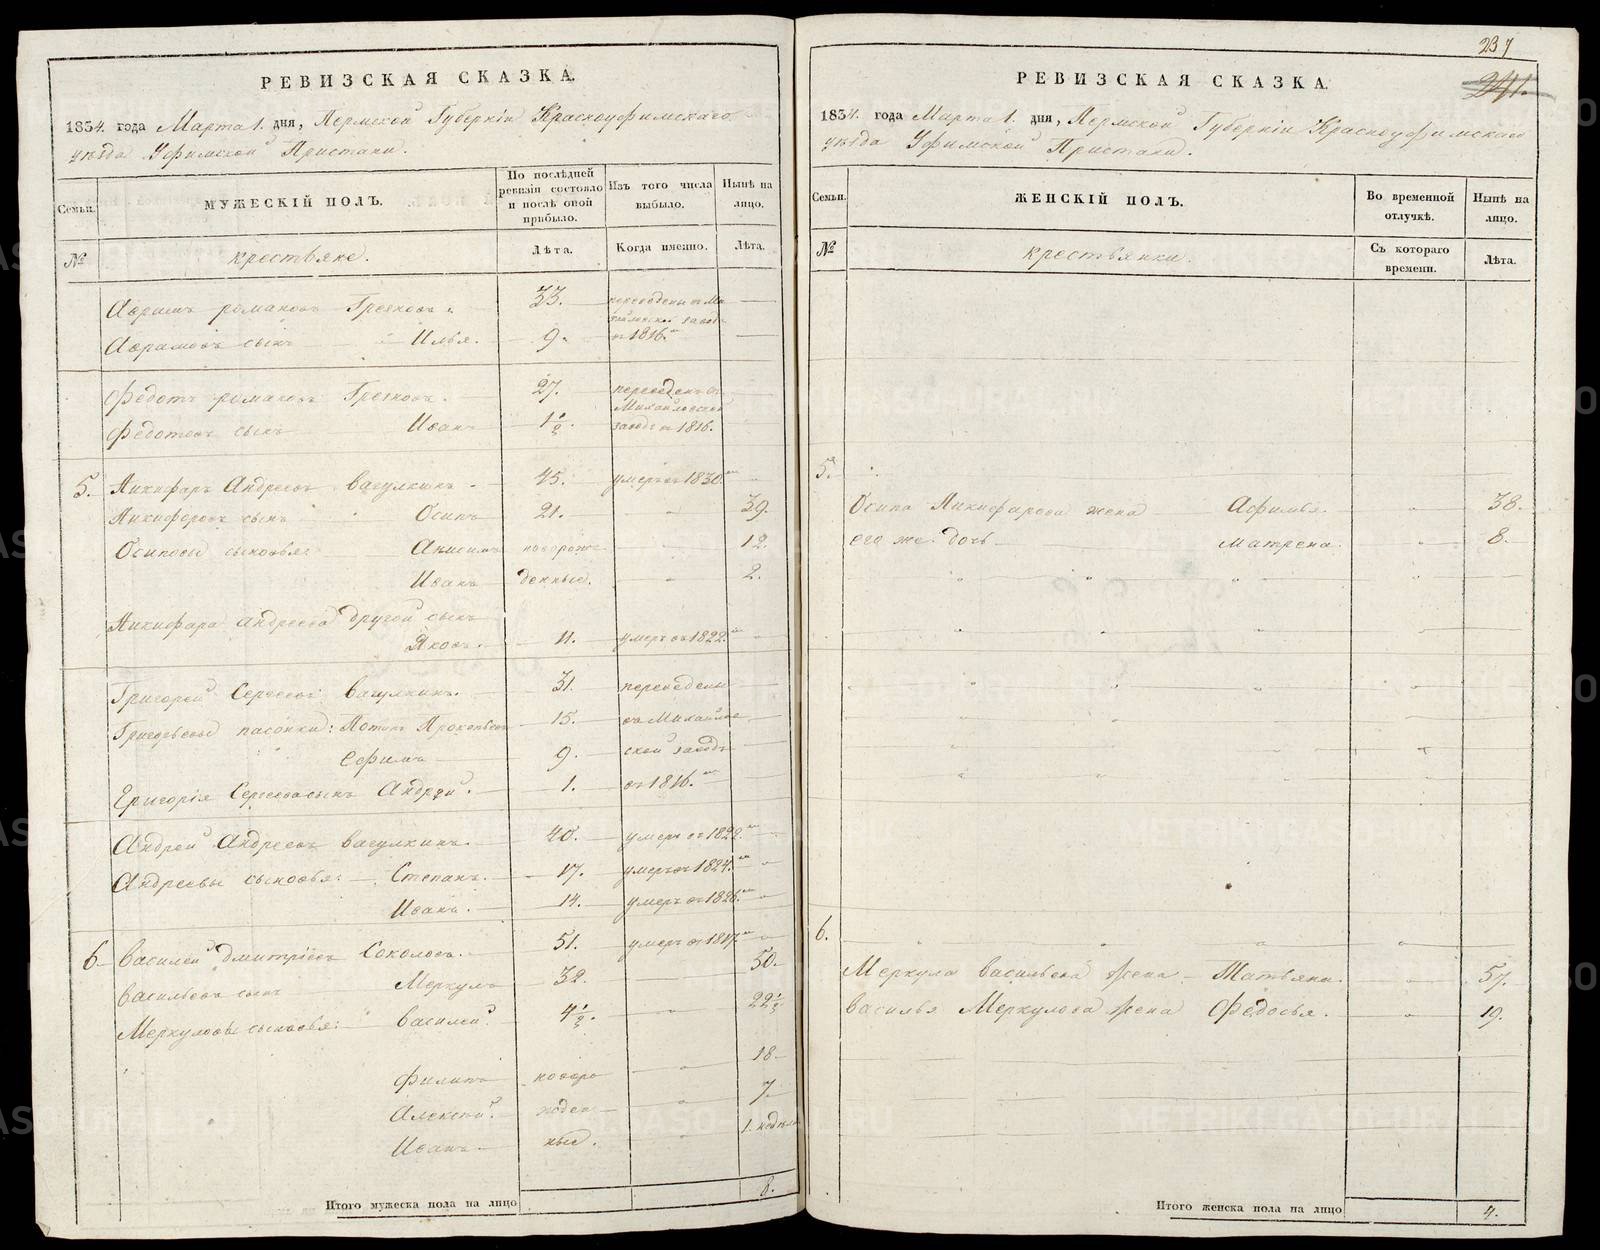 РЕВИЗСКАЯ СКАЗКА.
1834. года Марта 1. дня, Пермской Губернiи Красноуфимскаго
уѣзда Уфимской Пристани.
Семьи.
МУЖЕСКIЙ ПОЛЪ.
По послѣдней ревизiи состояло и послѣ оной прибыло.
Изъ того числа выбыло.
Нынѣ на лицо.
№
крестьяне.
Лѣта.
Когда именно.
Лѣта.
романовъ 33. переведены въ
Аврамовъ сынъ Илья. 9. въ 1816.
Федотъ романовъ 27. переведены въ
Михайловской
Федотовъ сынъ Иванъ 1 1/2. заводъ въ 1816.
5. Никифаръ Андреевъ Вагулкинъ. 45. умеръ въ 1830.
Никифоровъ сынъ Осипъ 21. 39.
Осиповы сыновья: Анисимъ новорож 12.
Иванъ денные. 2.
Никифара Андреева другой сынъ
Яковъ. 11. умеръ въ 1822.
Григорей Сергеевъ Вагулкинъ. 31. переведены
Григорьевы пасонки: Потапъ 15. въ Михайлов
Ефимъ 9. ской заводъ
Григорiя Сергеева сынъ Андрей. 1. въ 1816.
Андрей Андреевъ Вагулкинъ. 40. умеръ въ 1822.
Андреевы сыновья: Степанъ. 17. умеръ въ 1824.
Иванъ. 14. умеръ въ 1826.
6. Василей Дмитрiевъ Соколовъ. 51. умеръ въ 1817.
Васильевъ сынъ Меркулъ 32. 50.
Меркуловы сыновья: Василей 4 1/2. 22 1/2
Филипъ новоро 18.
Алексей. жден 7.
Иванъ ные. 1. недѣли
Итого мужеска пола на лицо 8.
237
241.
РЕВИЗСКАЯ СКАЗКА.
1834. года Марта 1. дня, Пермской Губернiи Красноуфимскаго
уѣзда Уфимской Пристани.
Семьи.
ЖЕНСКIЙ ПОЛЪ.
Во временной отлучкѣ.
Нынѣ на лицо.
№
крестьянки.
Съ котораго времени.
Лѣта.
5.
Осипа Никифарова жена Афимья. 38.
его же дочь Матрена. 8.
6.
Меркула Васильева жена Татьяна. 57.
Василья Меркулова жена Федосья. 19.
Итого женска пола на лицо 4.
METRIKI.GASO-URAL.RU